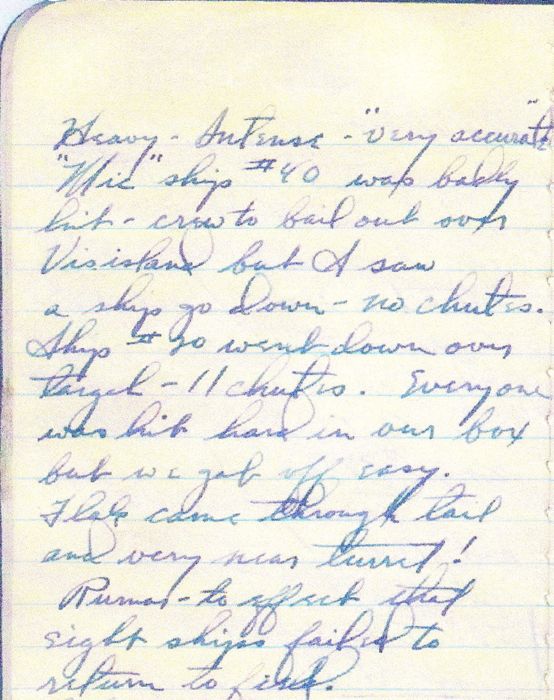 Heavy - Intense - "very accurate"
"Mic" ship #40 was badly
hit - crew to bail out over
Vis island but I saw
a ship go down - no chutes.
Ship # 20 went down over
target - 11 chutes. Everyone
was hit hard in our box
but we got off easy.
Flak came through tail
and very near turret!
Rumor - to effect that
eight ships failed to
return to field.